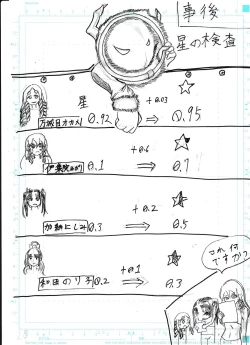 事後
星の検査
星
+0.03
万城目 0.92 ⇒ 0.95
+0.6
伊集院 0.1 ⇒ 0.7
+0.2
0.3 ⇒ 0.5
+0.1
和田のり子 0.2 ⇒ 0.3
これ、何
ですか?